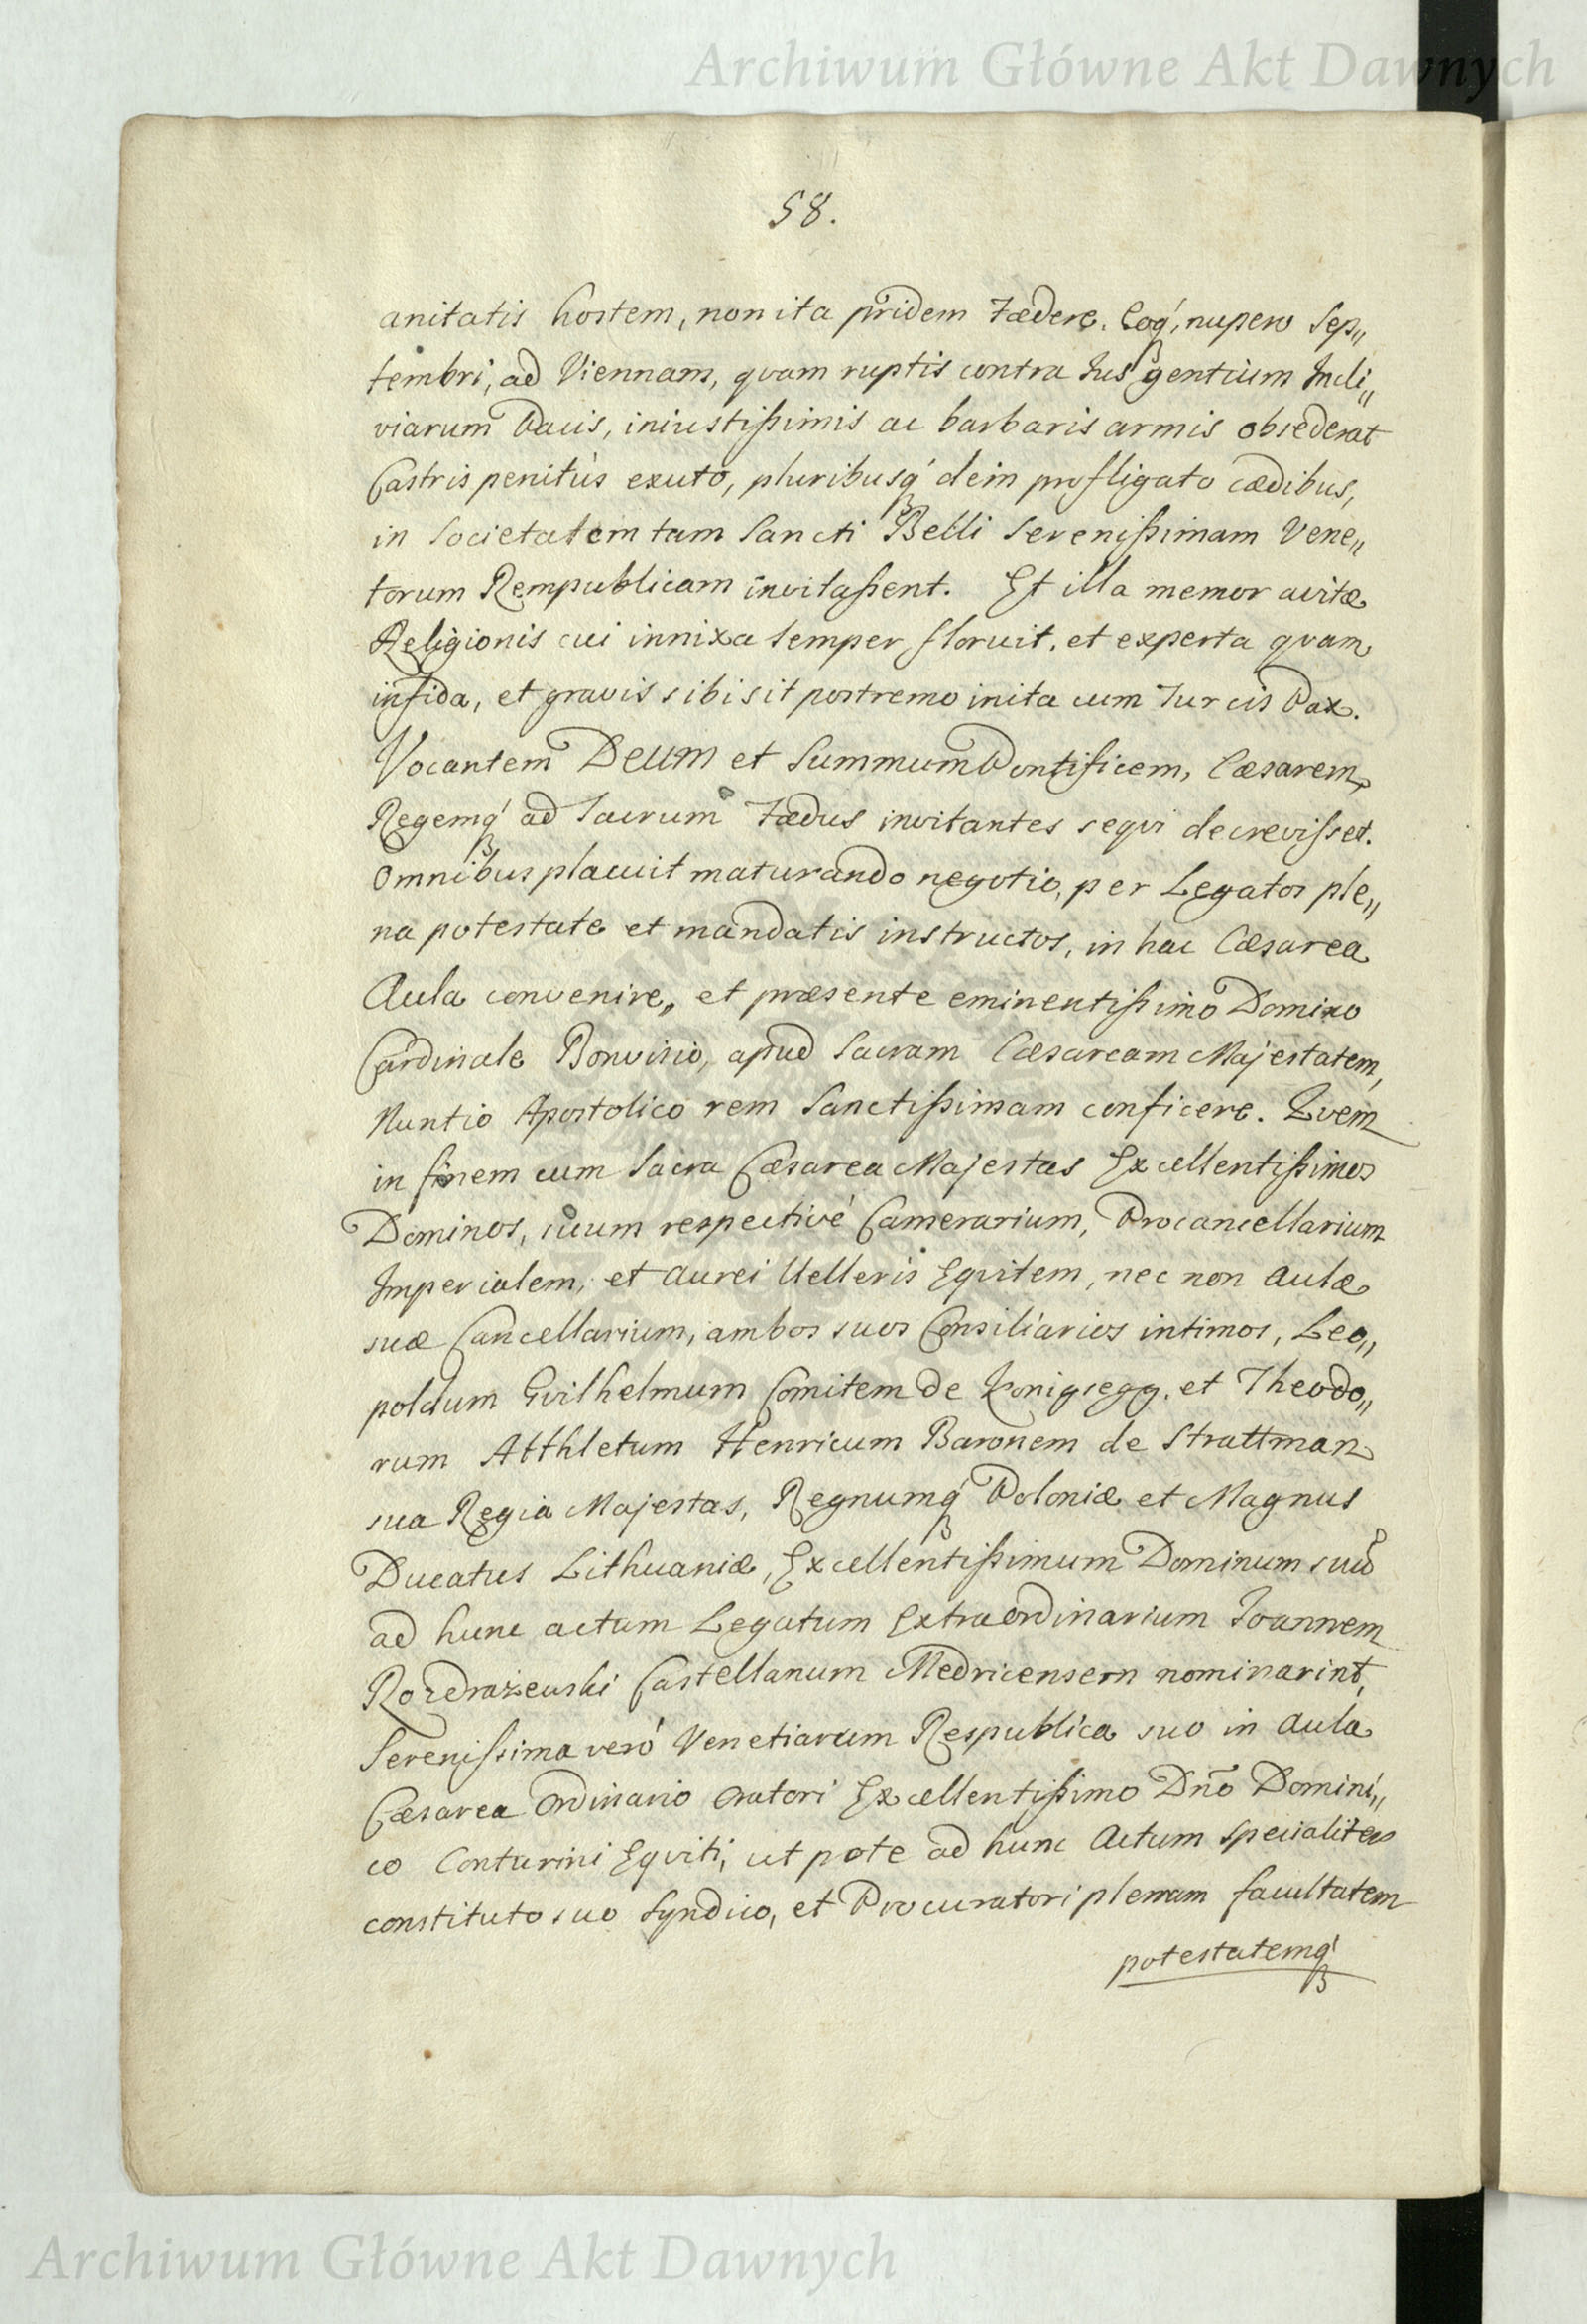 Archiwum Główne Akt Dawnych
58.
anitatis hostem, non ita pridem Fœdere. Eoq́, nupero Sep„
tembri, ad Viennam, qvam ruptis contra Jus gentium Indi„
viarum Pacis, iniustissimis ac barbaris armis obsederat
Castris penitùs exuto, pluribusq́ dein profligato cædibus,
in Societatem tam Sancti Belli Serenissimam Vene„
torum Rempublicam invitassent. Et illa memor avitæ
Religionis cui innixa Semper floruit. et experta qvam
infida, et gravis sibi sit postremo inita cum Turcis Pax.
Vocantem Deum et Summum Pontificem, Cæsarem
Regemq́ ad Sacrum Fœdus invitantes seqvi decrevisset.
Omnibus placuit maturando negotio, per Legatos ple„
na potestate et mandatis instructos, in hac Cæsarea
Aula convenire, et præsente eminentissimo Domino
Cardinale Bonvisio, apud Sacram Cæsaream Majestatem,
Nuntio Apostolico rem Sanctissimam conficere. Qvem
in finem cum Sacra Cæsarea Majestas Excellentissimos
Dominos, suum respectivè Camerarium, Procancellarium
Imperialem, et Aurei Velleris Eqvitem, nec non Aulæ
suæ Cancellarium, ambos suos Consiliarios intimos, Leo„
poldum Gvilhelmum Comitem de Konigsegg. et Theodo„
rum Atthletum Henricum Baronem de Strattman
sua Regia Majestas, Regnumq́ Poloniæ et Magnus
Ducatus Lithuaniæ, Excellentissimum Dominum suũ
ad hunc actum Legatum Extraordinarium Joannem
Rozdrażewski Castellanum Medricensem nominarint,
Serenissima verò Venetiarum Respublica suo in Aula
Cæsarea Ordinario Oratori Excellentissimo Dño Domini„
co Contarini Eqviti, ut pote ad hunc Actum specialiter
constituto suo Syndico, et Procuratori plenam facultatem
potestatemq́
Archiwum Główne Akt Dawnych